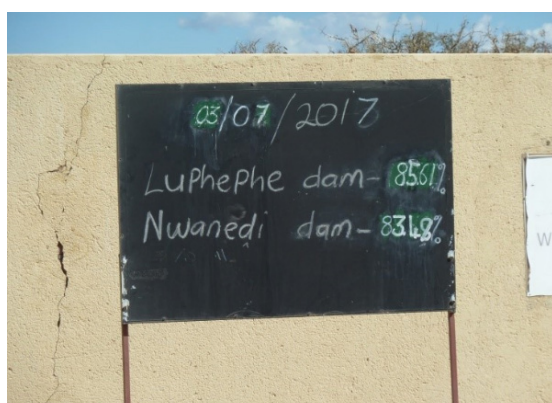 03/07/2017
Luphephe dam- 85.61%
Nwanedi dam- 83.48%
W